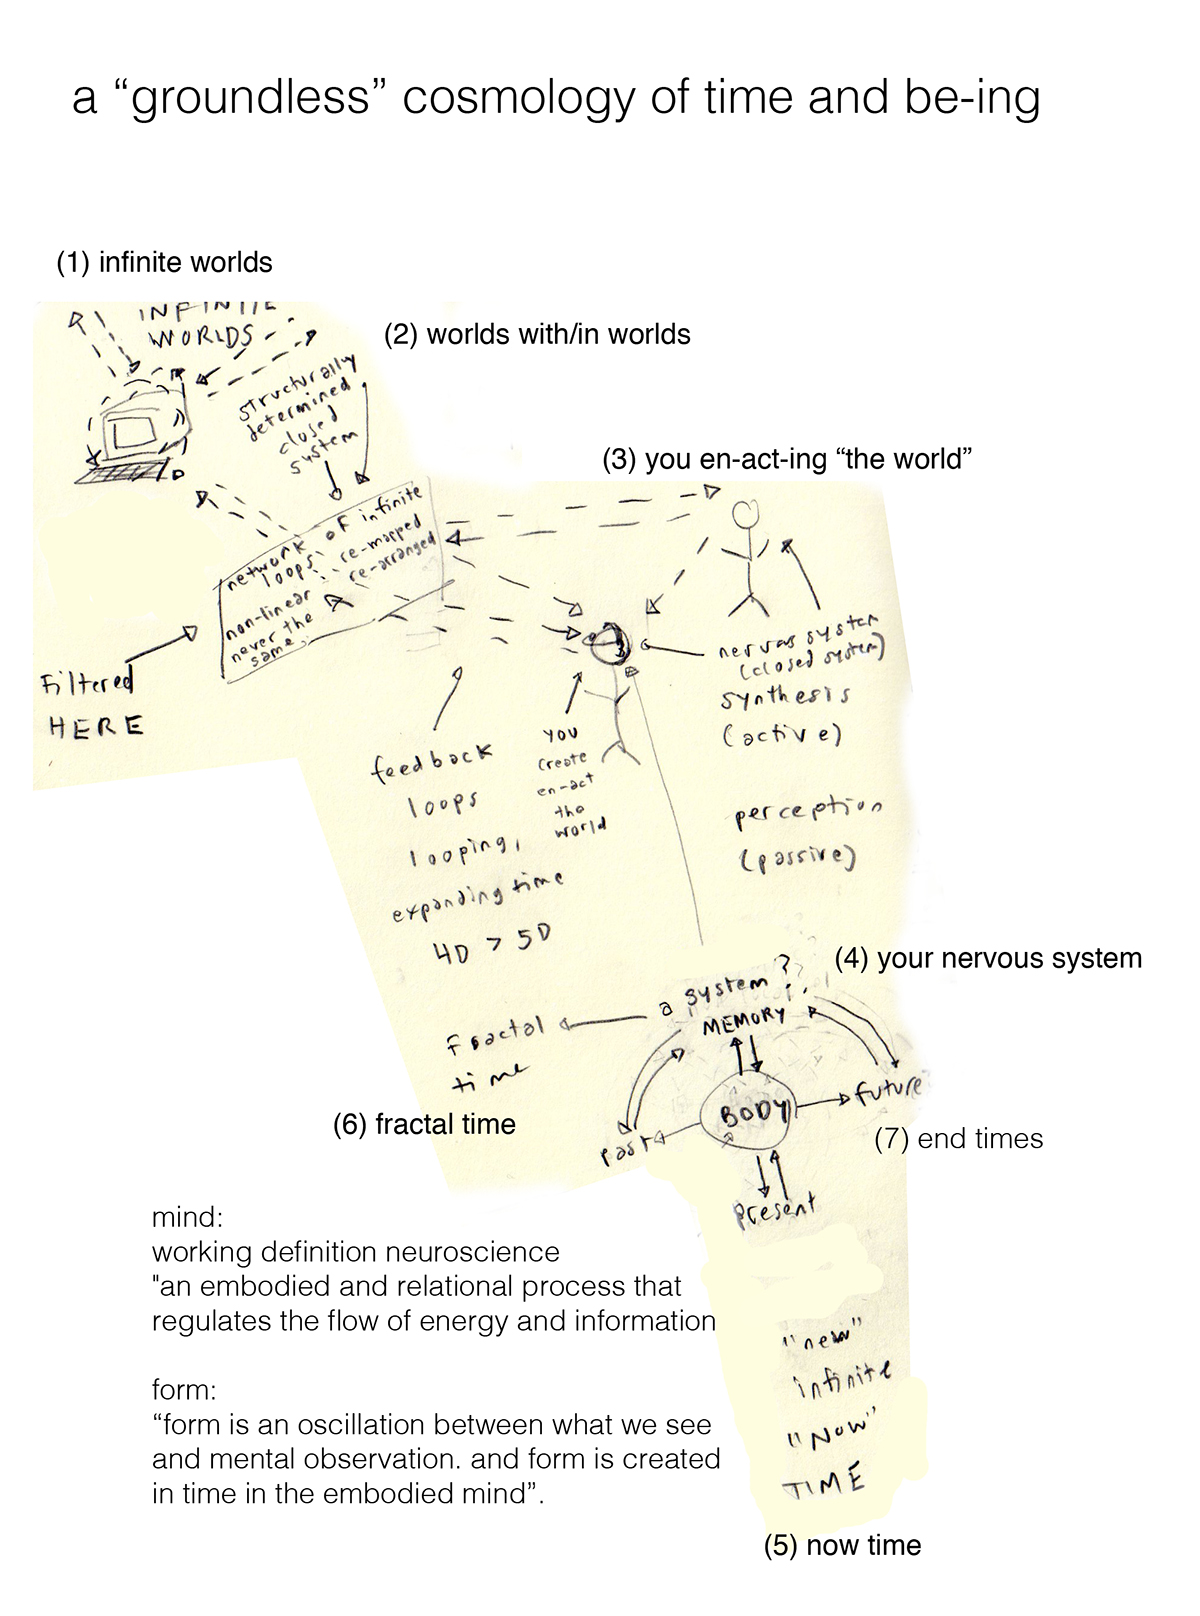 a “groundless” cosmology of time and be-ing
(1) infinite worlds
INFINITE
WORLDS
(2) worlds with/in worlds
structurally
determined
closed
system
(3) you en-act-ing “the world”
network of infinite
loops re-mapped
re-arranged
non-linear
never the
same
Filtered
HERE
nervous system
(closed system)
synthesis
(active)
perception
(passive)
feedback
loops
looping,
expanding time
4D > 5D
you
create
en-act
the
world
(4) your nervous system
a system ??
MEMORY
fractal
time
BODY
future
past
present
(6) fractal time
(7) end times
mind:
working definition neuroscience
"an embodied and relational process that
regulates the flow of energy and information
form:
“form is an oscillation between what we see
and mental observation. and form is created
in time in the embodied mind”.
"new"
infinite
"Now"
TIME
(5) now time